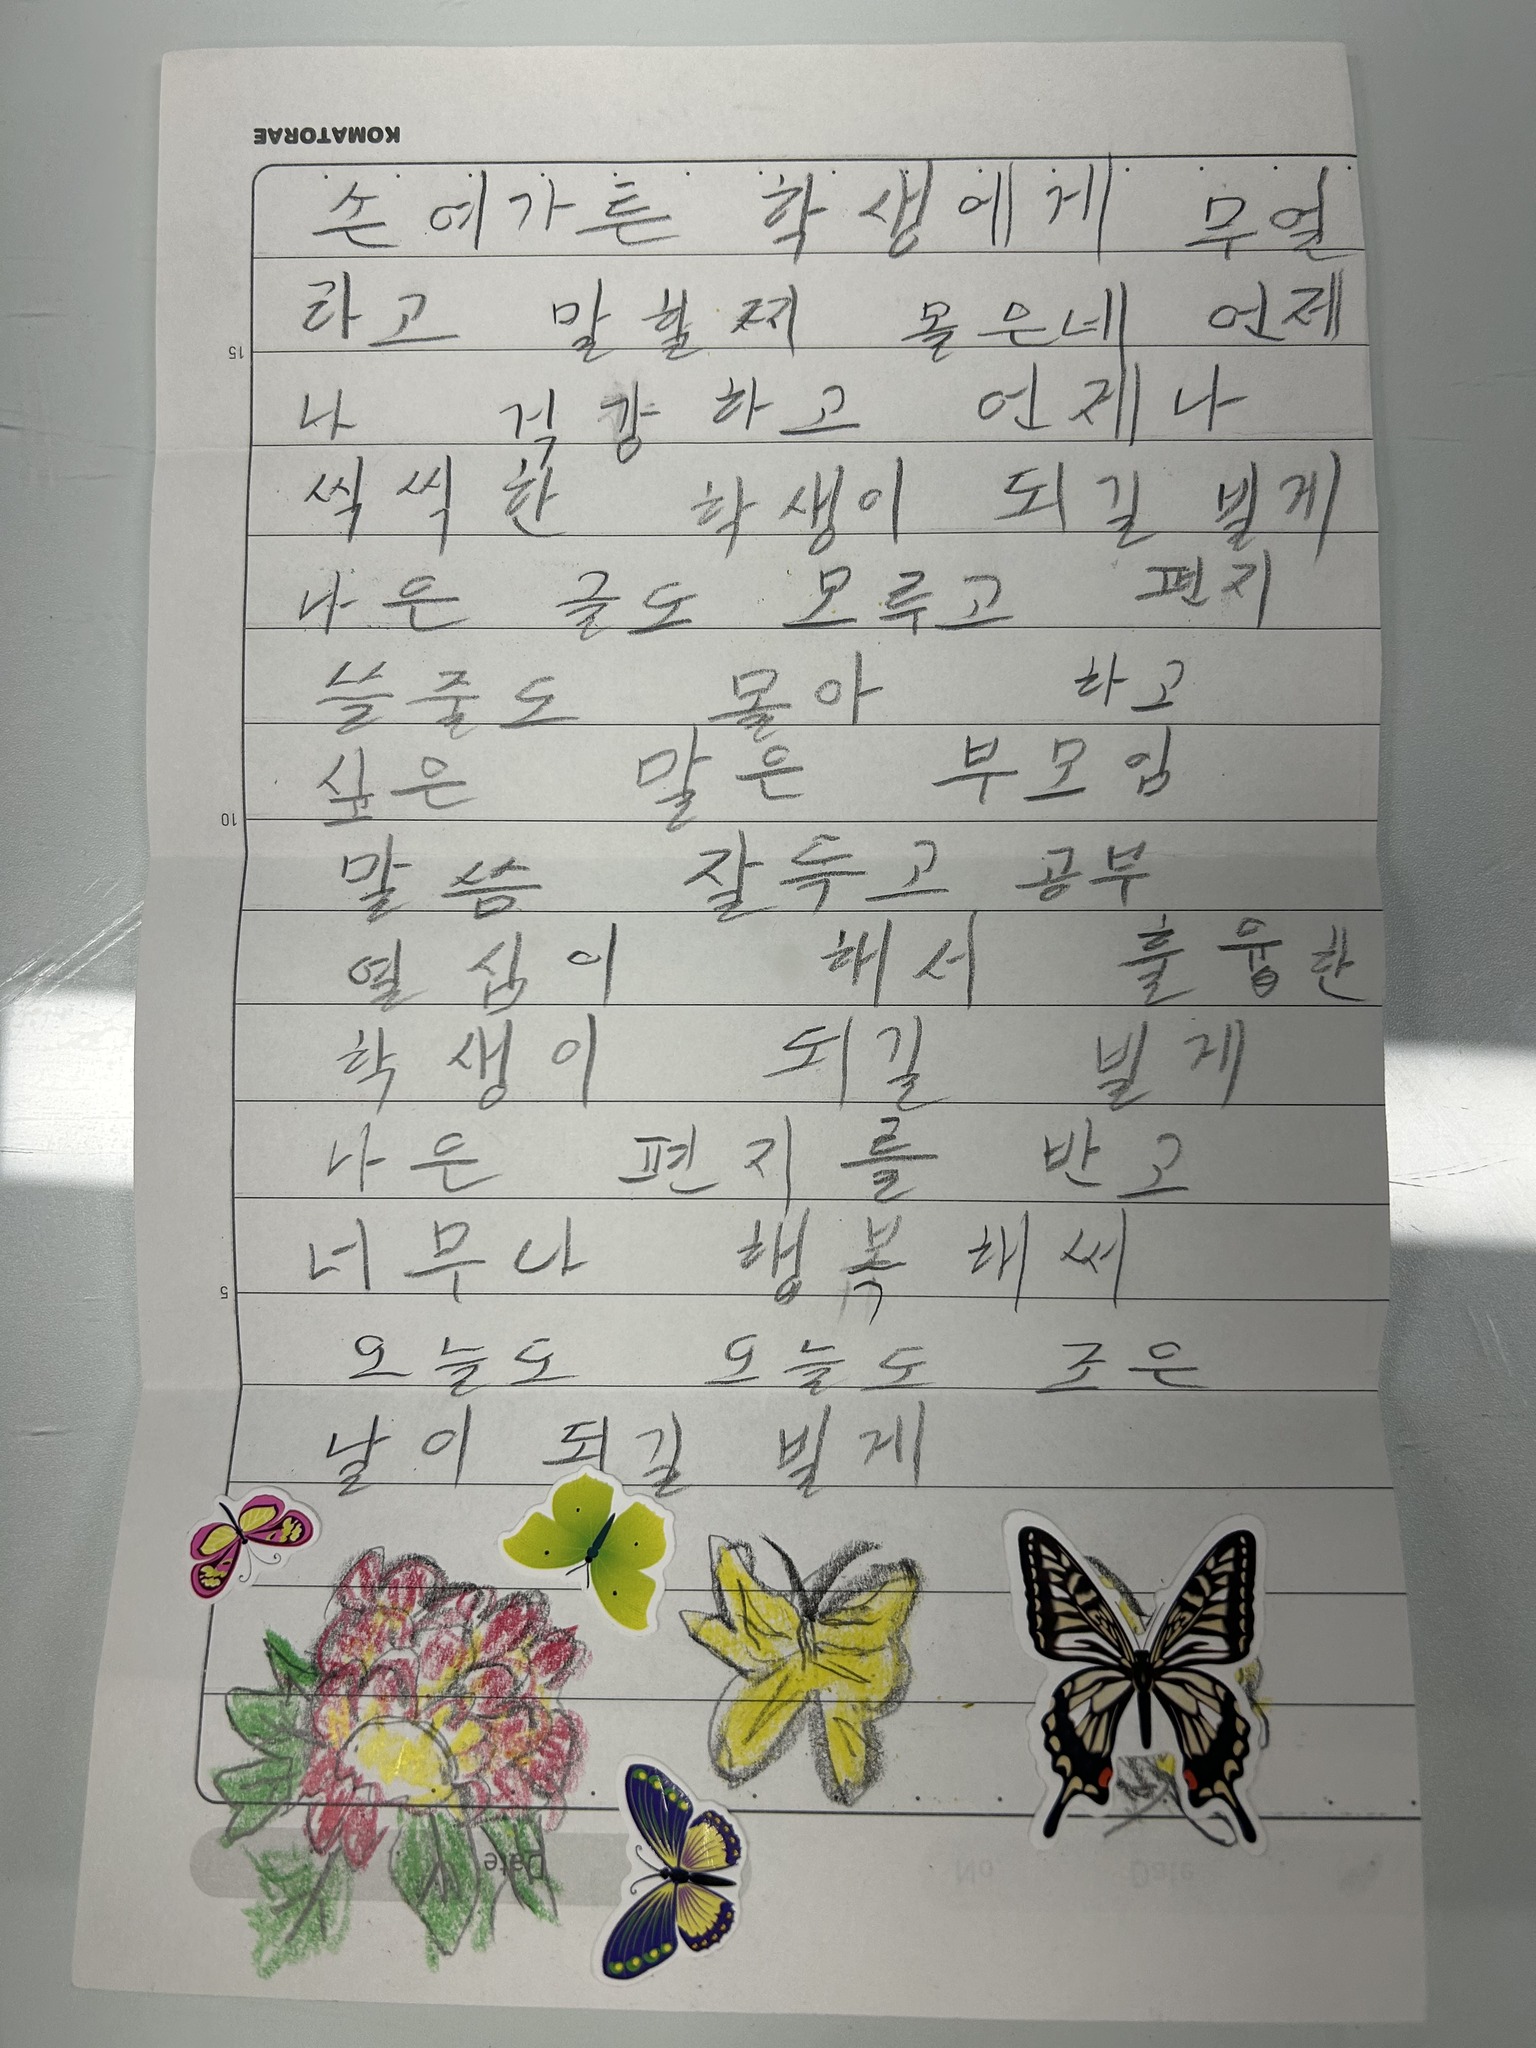 KOMATORAE
손여가튼 학생에게 무얼
라고 말할찌 몰은네 언제
나 걱강하고 언제나
씩씩한 학생이 되길 빌게
나은 글도 모루고 편지
쓸줄도 몰아 하고
싶은 말은 부모임
말씀 잘둑고 공부
열심이 해서 훌융한
학생이 되길 빌게
나은 편지를 반고
너무나 행복해써
오늘도 오늘도 조은
날이 되길 빌게
15
10
5
Date
No
Date